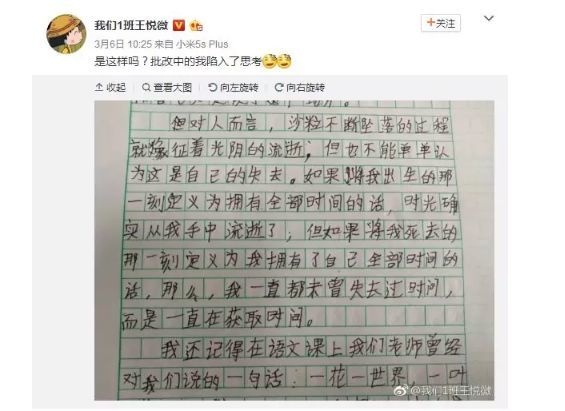 我们1班王悦微
+关注
3月6日 10:25 来自 小米5s Plus
是这样吗？批改中的我陷入了思考
收起 查看大图 向左旋转 向右旋转
但对人而言，沙粒不断坠落的过程
就象征着光阴的流逝；但也不能单单认
为这是自己的失去。如果将我出生的那
一刻定义为拥有全部时间的话，时光确
实从我手中流逝了；但如果将我死去的
那一刻定义为我拥有了自己全部时间的
话，那么，我一直都未曾失去过时间，
而是一直在获取时间。
我还记得在语文课上我们老师曾经
对我们说的一句话：一花一世界，一叶
@我们1班王悦微